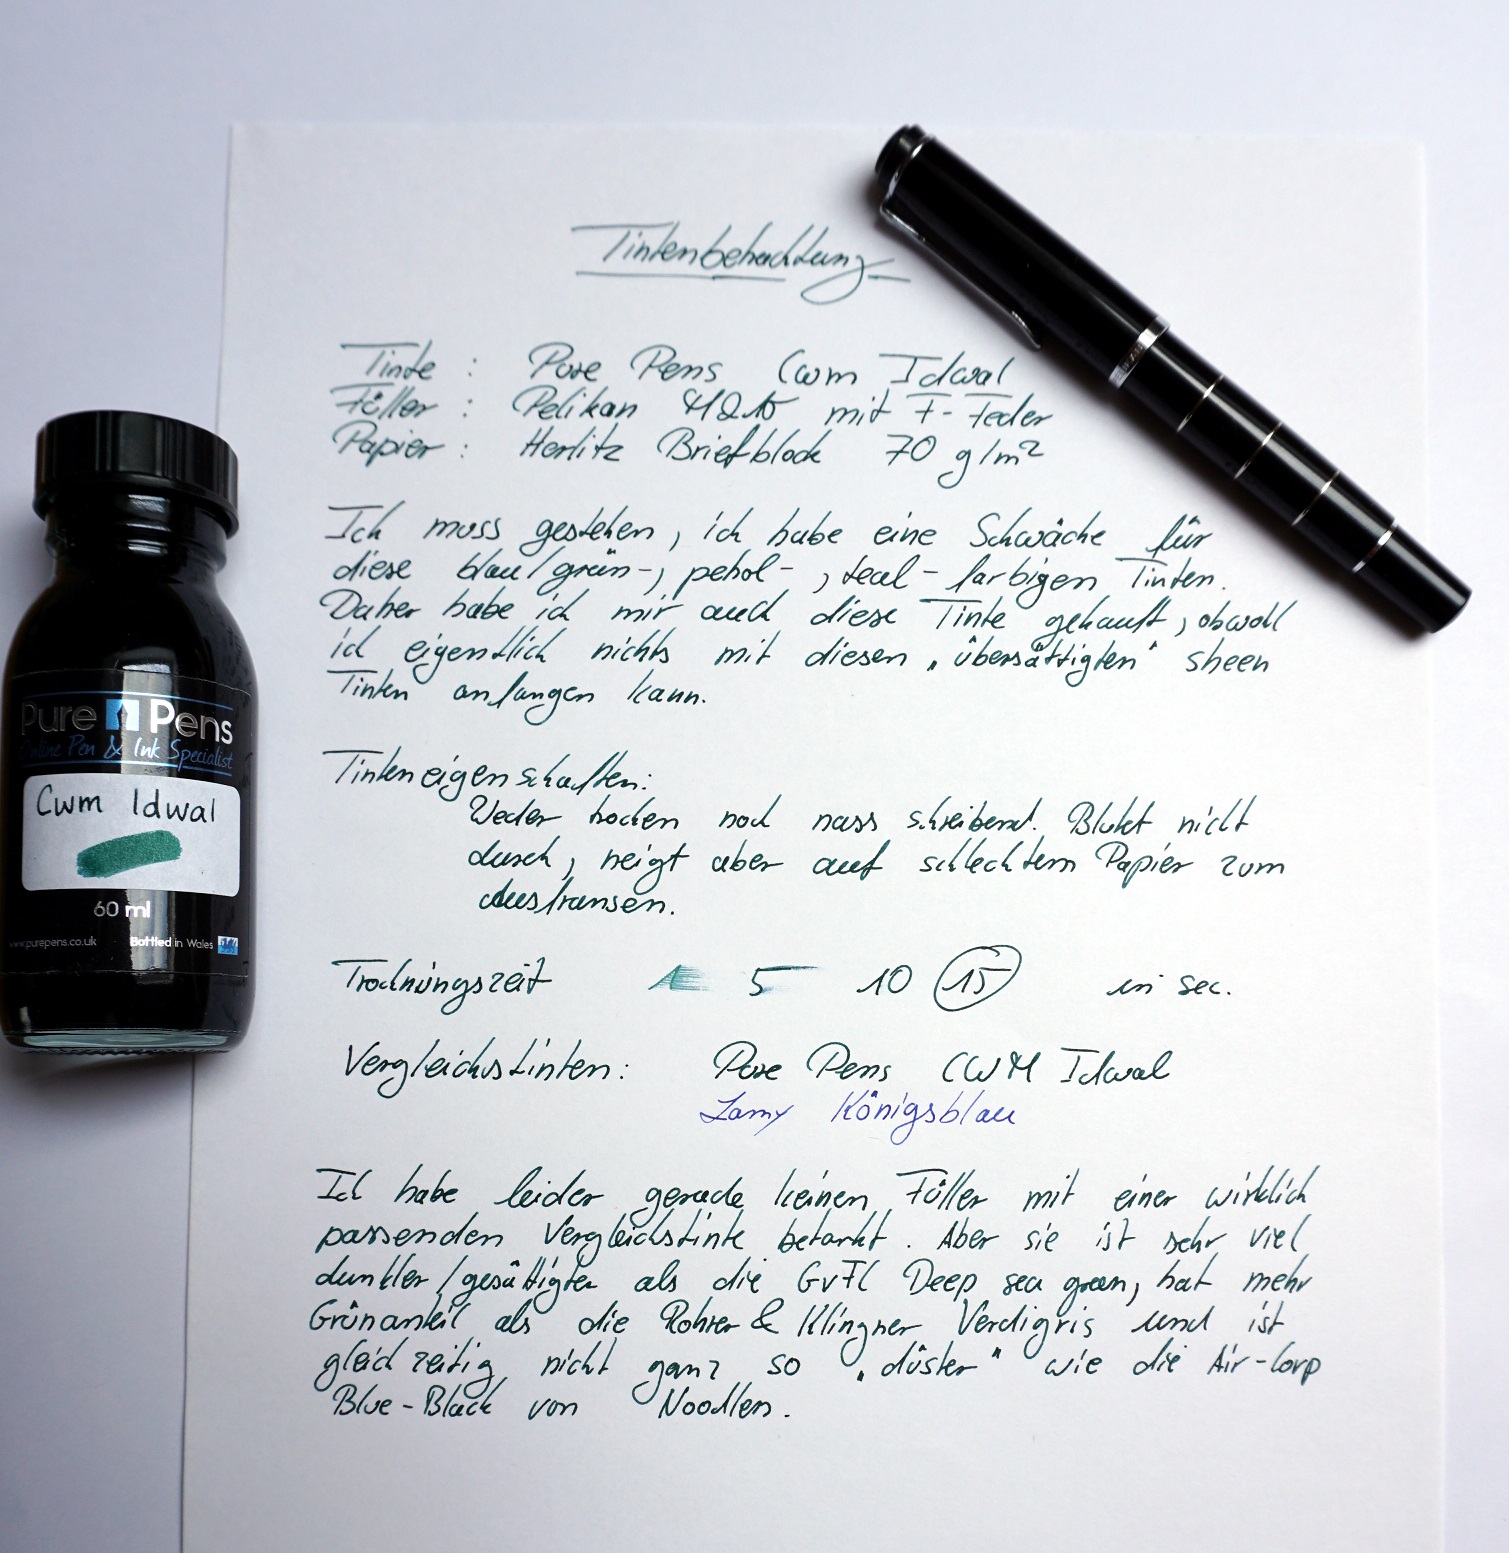 Tintenbetrachtung
Tinte : Pure Pens Cwm Idwal
Füller : Pelikan M215 mit F-Feder
Papier : Herlitz Briefblock 70 g/m²
Ich muss gestehen, ich habe eine Schwäche für
diese blau/grün-, petrol-, teal-farbigen Tinten.
Daher habe ich mir auch diese Tinte gekauft, obwohl
ich eigentlich nichts mit diesen „übersättigten" sheen
Tinten anfangen kann.
Tinteneigenschaften:
Weder trocken noch nass schreibend. Blutet nicht
durch, neigt aber auf schlechtem Papier zum
Ausfransen.
Trocknungszeit 1 5 10 15 in sec.
Vergleichstinten: Pure Pens CWM Idwal
Lamy Königsblau
Ich habe leider gerade keinen Füller mit einer wirklich
passenden Vergleichstinte betankt. Aber sie ist sehr viel
dunkler/gesättigter als die GvFC Deep sea green, hat mehr
Grünanteil als die Rohrer & Klingner Verdigris und ist
gleichzeitig nicht ganz so „düster" wie die Air-Corp
Blue-Black von Noodlers.
Pure Pens
Online Pen & Ink Specialist
Cwm Idwal
60 ml
www.purepens.co.uk Bottled in Wales